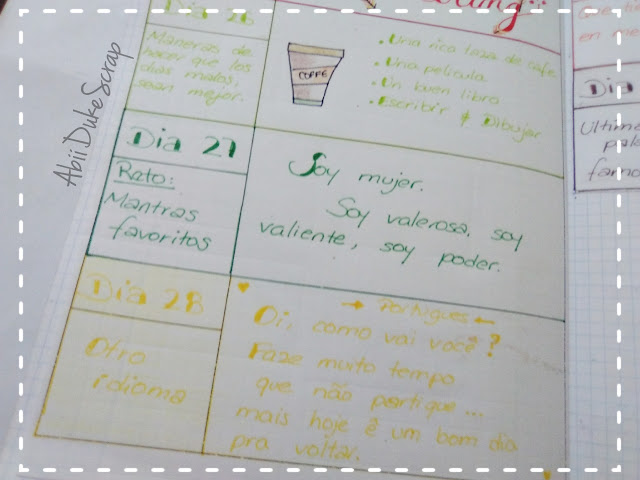 Dia 26
Maneras de
hacer que los
dias malos,
sean mejor.
COFFE
• Una rica taza de cafe
• Una pelicula
• Un buen libro
• Escribir y Dibujar
Dia 27
Reto:
Mantras
favoritos
Soy mujer.
Soy valerosa, soy
valiente, soy poder.
Dia 28
Otro
idioma
→ Portugues ←
Oi, como vai você?
Faze muito tempo
que não partique...
mais hoje ê um bom dia
pra voltar.
en me
Dia
Ultima
pala
famo
Abii Duke Scrap